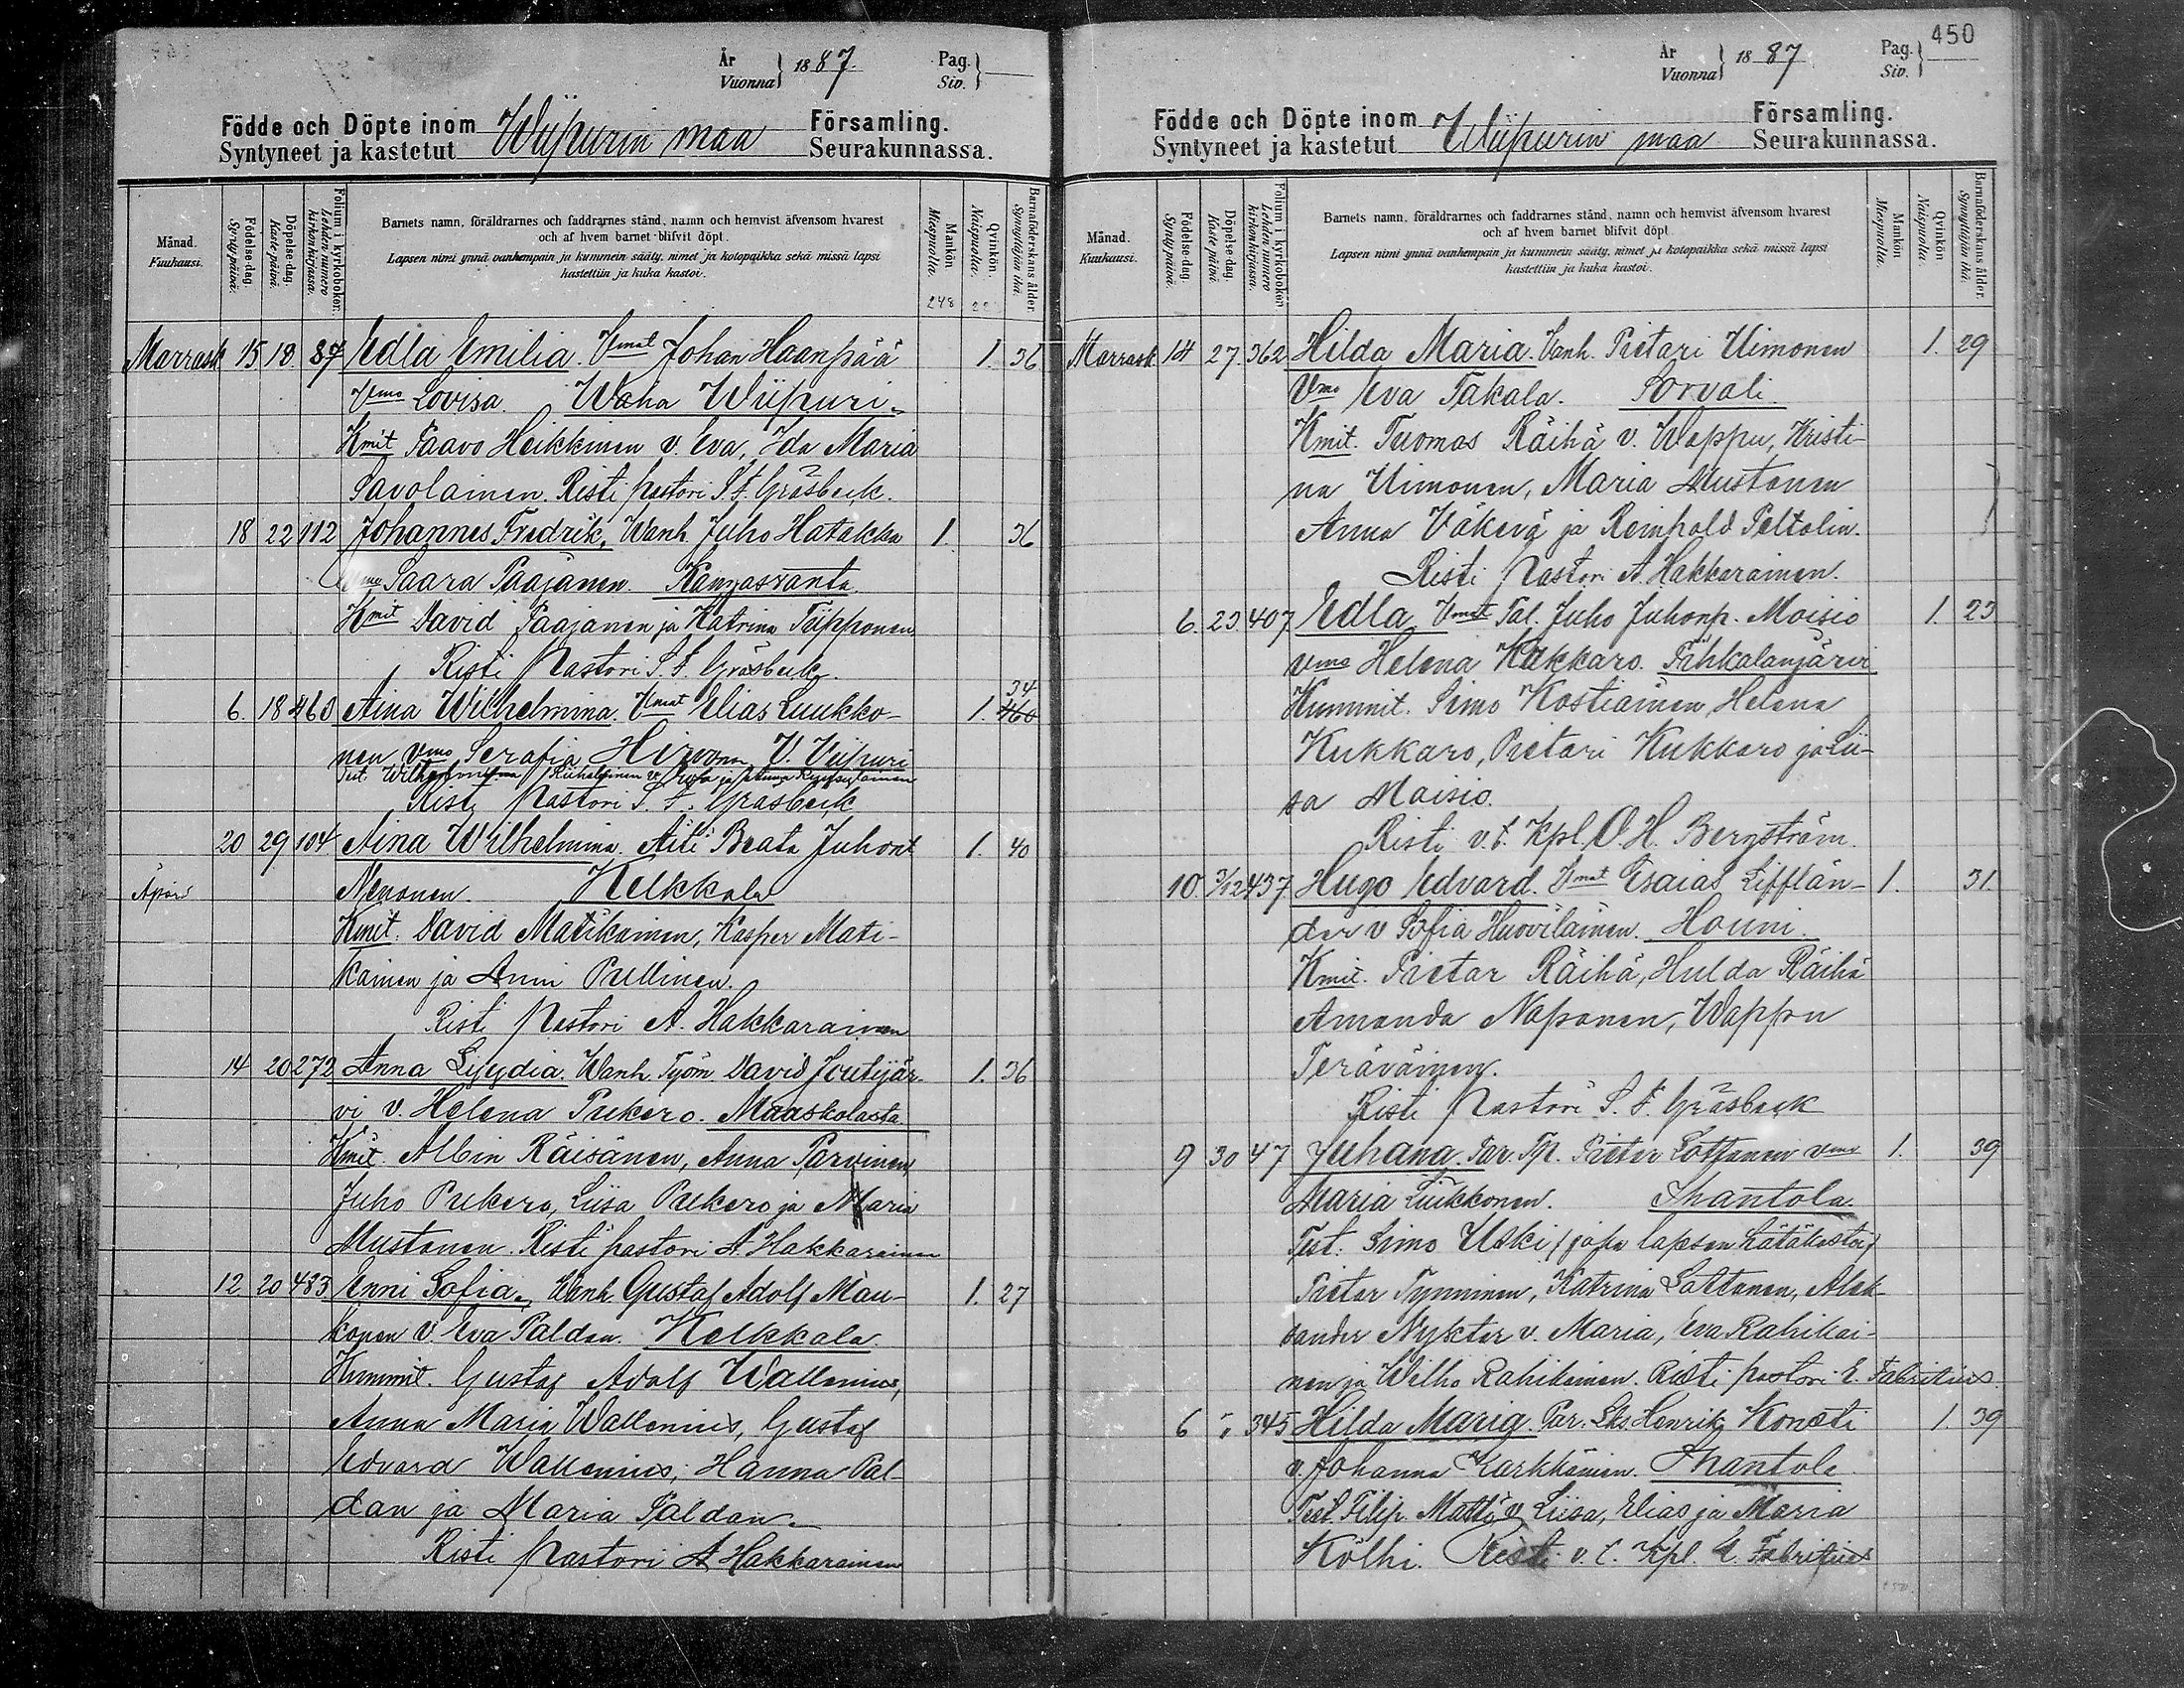 År
Vuonna } 1887.
Pag.
Siv. }
Födde och Döpte inom Wiipurin maa Församling.
Syntyneet ja kastetut Seurakunnassa.
Månad.
Kuukausi.
Födelse-dag.
Syntypäivä.
Döpelse-dag.
Kaste päivä.
Folium i kyrkoboken.
Lehden numero kirkonkirjassa.
Barnets namn, föräldrarnes och faddrarnes stånd, namn och hemvist äfvensom hvarest
och af hvem barnet blifvit döpt.
Lapsen nimi ynnä vanhempain ja kummein sääty, nimet ja kotopaikka sekä missä lapsi
kastettiin ja kuka kastoi.
Mankön.
Miespuolia.
248
Qvinkön.
Naispuolia.
Barnaföderskans ålder.
Synnyttäjän ikä.
Marrask 15 18 87 Edla Emilia. Vmat Johan Haanpää 1. 36
Vmo Lovisa. Waha Wiipuri.
Kmit Paavo Heikkinen v. Eva, Ida Maria
Savolainen. Risti pastori S. F. Gräsbeck.
18 22 112 Johannes Fredrik, Wanh. Juho Hatakka 1. 36
Vmo Saara Paajanen. Kangasranta
Kmit David Paajanen ja Katrina Tiipponen
Risti Pastori S. F. Gräsbeck.
34
6. 18 460 Aina Wilhelmina. Vmat Elias Luukko- 1. 460
nen Vmo Serafia Hirvonen V. Viipuri
Tist. Wilhelmiina
Risti Pastori S. F. Gräsbeck
20 29 104 Aina Wilhelmina. Äiti Beata Juhont 1. 40
Äpärä Nenonen. Kelkkala
Kmit. David Matikainen, Kasper Mati-
kainen ja Anni Pullinen.
Risti Pastori A. Hakkarainen
14 20 272 Anna Lyydia. Wanh. Työm. David Joutijär- 1. 36
vi v. Helena Pukero. Maaskolasta.
Kmit. Albin Räisänen, Anna Parvinen,
Juho Pukero, Liisa Pukero ja Maria
Mustonen. Risti pastori A. Hakkarainen
12 20 483 Enni Sofia. Wanh. Gustaf Adolf Mau- 1. 27
konen v. Eva Paldan. Kelkkala.
Kummit. Gustaf Adolf Wallenius,
Anna Maria Wallenius, Gustaf
Edvard Wallenius, Hanna Pal-
dan ja Maria Paldan.
Risti Pastori A. Hakkarainen
450
År
Vuonna } 1887
Pag.
Siv. }
Födde och Döpte inom Wiipurin maa Församling.
Syntyneet ja kastetut Seurakunnassa.
Månad.
Kuukausi.
Födelse-dag.
Syntypäivä.
Döpelse-dag.
Kaste päivä.
Folium i kyrkoboken
Lehden numero kirkonkirjassa.
Barnets namn, föräldrarnes och faddrarnes stånd, namn och hemvist äfvensom hvarest
och af hvem barnet blifvit döpt.
Lapsen nimi ynnä vanhempain ja kummein sääty, nimet ja kotopaikka sekä missä lapsi
kastettiin ja kuka kastoi.
Mankön
Miespuolia.
Qvinkön
Naispuolia.
Barnaföderskans ålder.
Synnyttäjän ikä.
Marrask. 14 27. 362 Hilda Maria. Vanh. Pietari Uimonen 1. 29
Vmo Eva Takala. Sorvali.
Kmit. Tuomas Räihä v. Wappu, Kristi-
na Uimonen, Maria Mustonen
Anna Väkevä ja Reinhold Peltolin.
Risti Pastori A. Hakkarainen.
6. 23. 407 Edla. Vmat Tal. Juho Juhonp. Moisio 1. 23
vmo Helena Kukkaro. Pihkalanjärvi
Kummit. Simo Kostiainen, Helena
Kukkaro, Pietari Kukkaro ja Lii-
sa Moisio.
Risti v.t. Kpl. O. H. Bergström.
10. 3/12 437 Hugo Edvard. Vmat Esaias Lifflän- 1. 31.
der v Sofia Huovilainen. Houni.
Kmit. Pietar Räihä, Hulda Räihä
Amanda Naponen, Wappu
Teräväinen.
Risti Pastori S. F. Gräsbeck
9 30 47 Juhana. Par. Tp. Pietar Lattanen vmo 1. 39
Maria Liukkonen. Ihantola.
Tist: Simo Uski (joka lapsen hätäkastoi)
Pietar Tynninen, Katrina Lattanen, Alek-
sander Nykter v. Maria, Eva Rahikai-
nen ja Wilho Rahikainen. Risti pastori E. Fabritius.
6 " 345 Hilda Maria. Par. Lks. Henrik Konsti 1. 39
v. Johanna Karkkainen. Ihantola
Tist. Filip. Matti v Liisa, Elias ja Maria
Kölhi. Risti v. t. Kpl. E. Fabritius